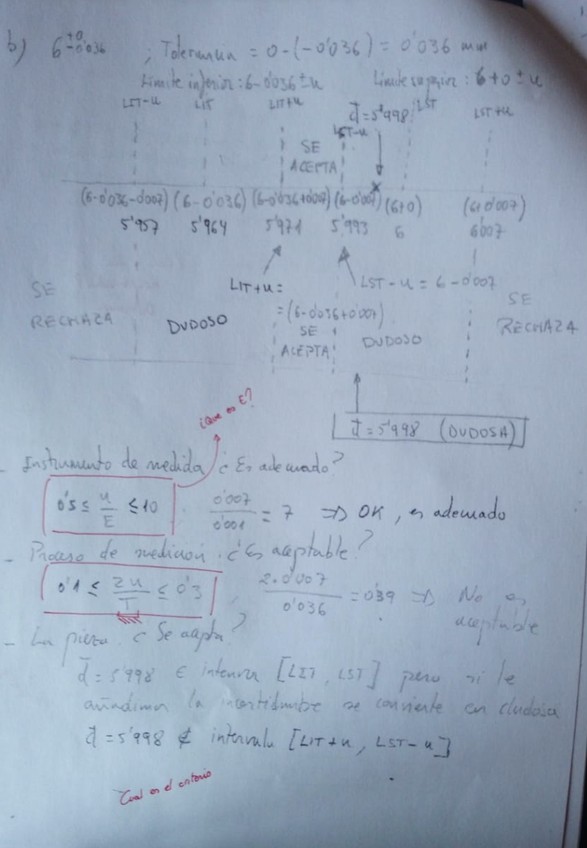 b) 6 +0 -0'036 ; Tolerancia = 0-(-0'036) = 0'036 mm
Límite inferior: 6-0'036 ± u Límite superior: 6+0 ± u
LIT-u LIT LIT+u d̄=5'998 LST LST+u
LST-u
SE
ACEPTA
(6-0'036-0'007) (6-0'036) (6-0'036+0'007) (6-0'007) (6+0) (6+0'007)
5'957 5'964 5'971 5'993 6 6'007
LIT+u = LST-u = 6-0'007
=(6-0'036+0'007)
SE
RECHAZA
DUDOSO
SE
ACEPTA
DUDOSO
SE
RECHAZA
d̄=5'998 (DUDOSA)
¿Que es E?
- Instrumento de medida ¿Es adecuado?
0'5 ≤ u/E ≤ 10 0'007/0'001 = 7 ⇒ OK, es adecuado
- Proceso de medición ¿Es aceptable?
0'1 ≤ 2u/T ≤ 0'3, 2·0'007/0'036 = 0'39 ⇒ No es
aceptable
- La pieza ¿Se acepta?
d̄=5'998 ∈ intervalo [LIT, LST] pero si le
añadimos la incertidumbre se convierte en dudosa
d̄=5'998 ∉ intervalo [LIT+u, LST-u]
Cual es el criterio